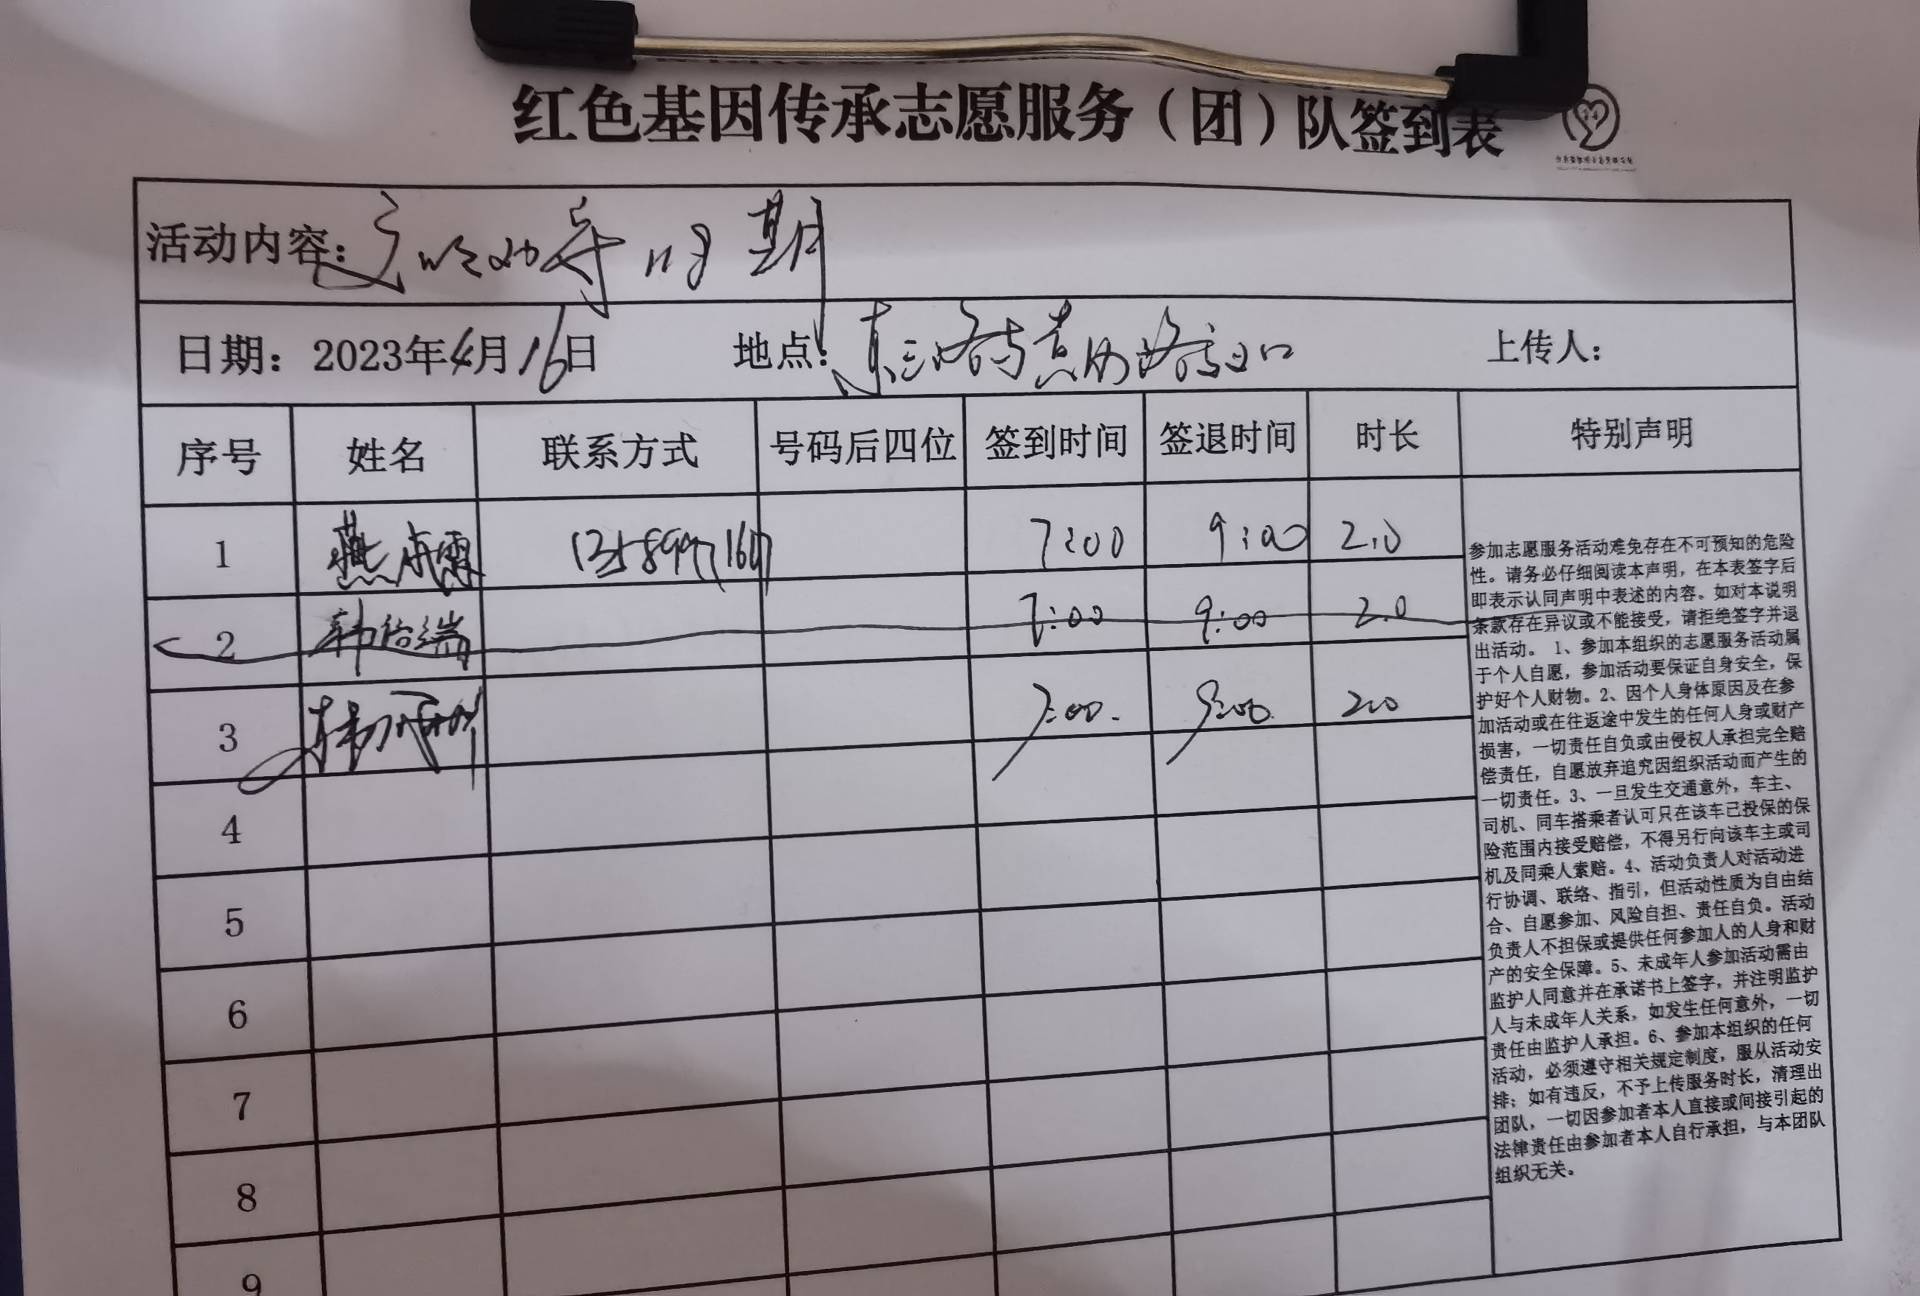 红色基因传承志愿服务（团）队签到表
活动内容：文明劝导 108 期
日期：2023年4月16日 地点：东三路与黄河路交口 上传人：
序号 姓名 联系方式 号码后四位 签到时间 签退时间 时长 特别声明
1 燕成霞 7:00 9:00 2.0
2 韩 端 7:00 9:00 2.0
3 韩 7:00. 9:00. 2.0
4
5
6
7
8
9
参加志愿服务活动难免存在不可预知的危险
性。请务必仔细阅读本声明，在本表签字后
即表示认同声明中表述的内容。如对本说明
条款存在异议或不能接受，请拒绝签字并退
出活动。 1、参加本组织的志愿服务活动属
于个人自愿，参加活动要保证自身安全，保
护好个人财物。2、因个人身体原因及在参
加活动或在往返途中发生的任何人身或财产
损害，一切责任自负或由侵权人承担完全赔
偿责任，自愿放弃追究因组织活动而产生的
一切责任。3、一旦发生交通意外，车主、
司机、同车搭乘者认可只在该车已投保的保
险范围内接受赔偿，不得另行向该车主或司
机及同乘人索赔。4、活动负责人对活动进
行协调、联络、指引，但活动性质为自由结
合、自愿参加、风险自担、责任自负。活动
负责人不担保或提供任何参加人的人身和财
产的安全保障。5、未成年人参加活动需由
监护人同意并在承诺书上签字，并注明监护
人与未成年人关系，如发生任何意外，一切
责任由监护人承担。6、参加本组织的任何
活动，必须遵守相关规定制度，服从活动安
排；如有违反，不予上传服务时长，清理出
团队，一切因参加者本人直接或间接引起的
法律责任由参加者本人自行承担，与本团队
组织无关。